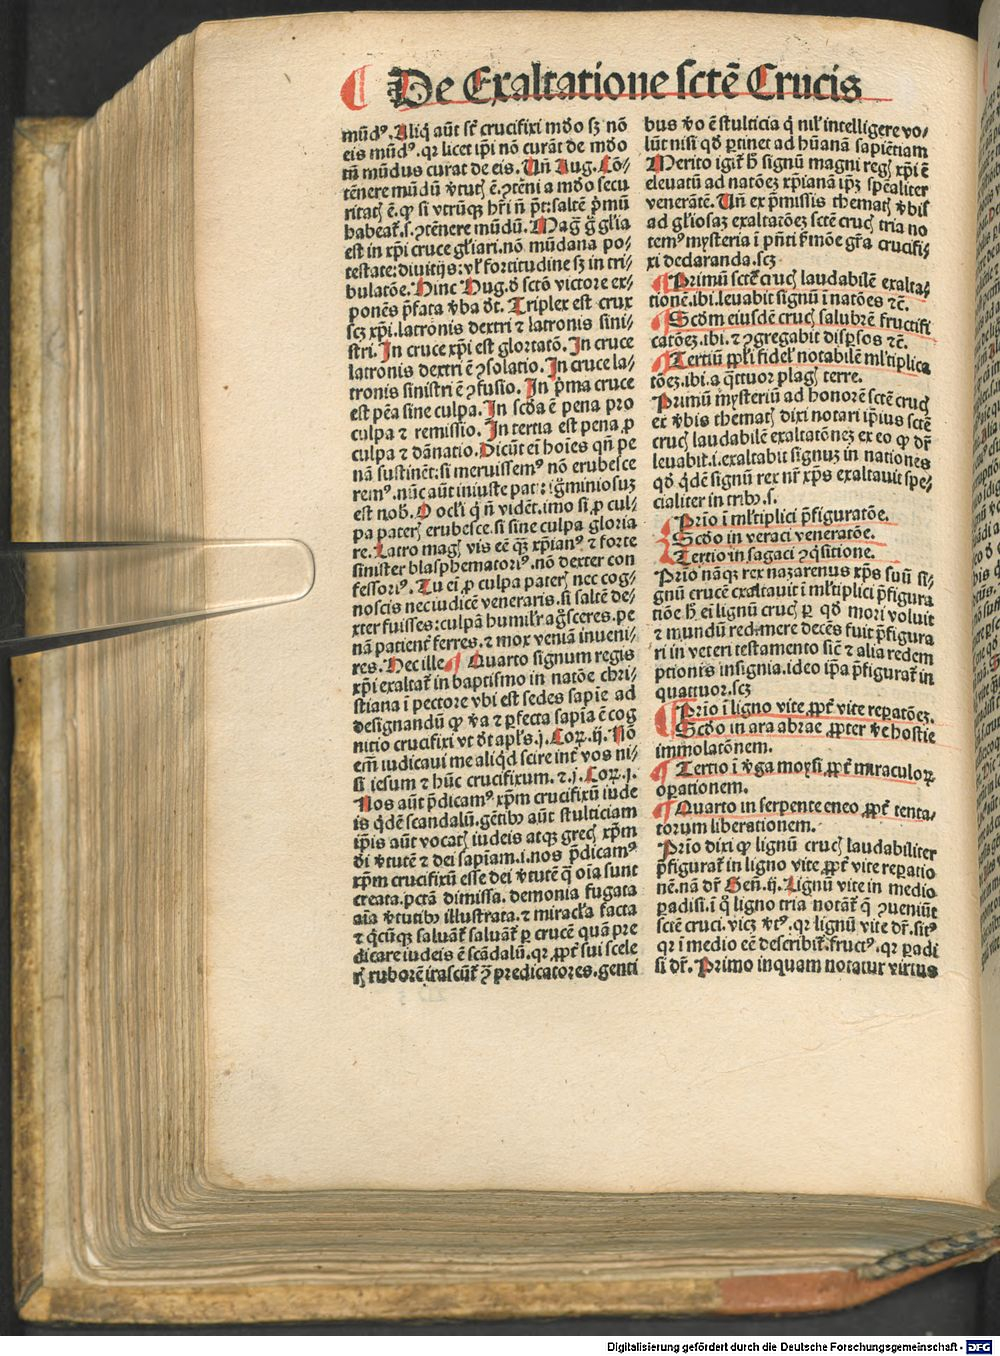 De Exaltatione sctē Crucis
mūdꝰ. Aliq̄ aūt st̄ crucifixi mūdo sꝫ nō
eis mūdꝰ. qr licet ip̄i nō curāt de mūdo
tn̄ mūdus curat de eis. Un̄ Aug. Cō-
tēnere mūdū
ritatꝭ ē. ꝙ si vtrūqꝫ hr̄i n̄ p̄t: saltē p̄mū
habeat̄. s. ꝯtēnere mūdū. Maḡ glīa
est in xp̄i cruce gl̄iari. nō mūdana po-
testate: diuitijs: vl̓ fortitudine sꝫ in tri-
bulatōe. Hinc Hug. d̓ sctō victore ex-
ponēs p̄fata v̓ba d̓t. Triplex est crux
scꝫ xp̄i. latronis dextri ⁊ latronis sini-
stri. In cruce xp̄i est gloriatō. In cruce
latronis dextri ē ꝯsolatio. In cruce la-
tronis sinistri ē ꝯfusio. In p̄ma cruce
est pēa sine culpa. In scd̓a ē pena pro
culpa ⁊ remissio. In tertia est pena ꝓ
culpa ⁊ dānatio. Dicūt eī hoīes qn̄ pe
nā sustinēt: si meruissemꝰ nō erubesce
remꝰ. nūc aūt iniuste
est nob̓. O q̄ n̄ vidēt. imo si ꝓ cul-
pa paterꝭ erubesce. si sine culpa gloria
re. Latro magꝭ vis eē q̄ꝫ xp̄ianꝰ ⁊ forte
sinister blasphematoriꝰ. nō dexter con
fessoriꝰ. Tu eī ꝓ culpa paterꝭ nec cog-
noscis nec iudicē veneraris. si saltē de-
xter fuisses: culpā humilr̄ agn̄sceres. pe
nā patient̓ ferres. ⁊ mox veniā inueni-
res. Hec ille. ¶ Quarto signum regis
xp̄i exaltat̄ in baptismo in natōe chri-
stiana i pectore vbi est sedes sapīe ad
designandū ꝙ v̓a ⁊ ꝑfecta sapīa ē cog
nitio crucifixi vt d̓t apl̓s. j. Coꝝ. ij. Nō
em̄ iudicaui me aliqd̓ scire int̓ vos ni-
si iesum ⁊ hūc crucifixum. ⁊ j. Coꝝ. j.
Nos aūt p̄dicamꝰ xp̄m crucifixū iude
is qd̓ē scandalū. gētibꝰ aūt stulticiam
ip̄is aūt vocatꝭ iudeis atqꝫ grecꝭ xp̄m
di v̓tutē ⁊ dei sapīam. i. nos p̄dicamꝰ
xp̄m crucifixū esse dei v̓tutē q̄ oīa sunt
creata. pctā dimissa. demonia fugata
aīa v̓tutibꝰ illustrata. ⁊ miracl̓a facta
⁊ qͥcūqꝫ saluāt̄ saluāt̄ ꝑ crucē quā pre
dicare iudeis ē scādalū. qr ꝓpt̓ sui scele
rꝭ ruborē irascūt̄ ꝯ predicatores. genti
bus v̓o ē stulticia qͥ nil̓ intelligere vo-
lūt nisi qd̓ ꝑtinet ad hūanā sapiētiam
Merito igit̄ h̓ signū magni regꝭ xp̄i ē
eleuatū ad natōeꝫ xp̄ianā ip̄ꝫ spēaliter
venerātē. Un̄ ex p̄missis thematꝭ v̓bis
ad gl̓iosaꝫ exaltatōeꝫ sctē crucꝭ tria no
temꝰ mysteria ī p̄n̄ti f̓mōe gr̄a crucifi-
xi declaranda. scꝫ
¶ Primū sctē crucꝭ laudabilē exalta-
tionē. ibi. leuabit signū ī natōes ⁊c̄.
¶ Scd̓m eiusdē crucꝭ salubrē fructifi
catōeꝫ. ibi. ⁊ ꝯgregabit disꝑsos ⁊c̄.
¶ Tertiū ppl̓i fidel̓ notabilē ml̓tiplica
tōeꝫ. ibi. a q̄ttuor plagꝭ terre.
Primū mysteriū ad honorē sctē crucꝭ
ex v̓bis thematꝭ dixi notari ip̄ius sctē
crucꝭ laudabilē exaltatōneꝫ ex eo ꝙ dr̄
leuabit. i. exaltabit signuꝫ in nationes
qd̓ qd̓ē signū rex nr̄ xp̄s exaltauit spe-
cialiter in tribꝰ. s.
Prīo ī ml̓tiplici p̄figuratōe.
Scd̓o in veraci veneratōe.
Tertio in sagaci ꝯqͥsitione.
Prīo nāqꝫ rex nazarenus xp̄s suū si-
gnū crucē exaltauit ī ml̓tiplici p̄figura
tiōe h̓ ei lignū crucꝭ ꝑ qd̓ mori voluit
⁊ mundū redimere decēs fuit p̄figura
ri in veteri testamento sic̄ ⁊ alia redem
ptionis insignia. ideo ip̄a p̄figurat̄ in
quattuor. scꝫ
¶ Prīo ī ligno vite ꝓpt̓ vite reꝑatōeꝫ.
Scd̓o in ara abrae ꝓpter v̓e hostie
immolatōnem.
¶ Tertio ī v̓ga moysi ꝓpt̓ miraculoꝝ
oꝑationem.
¶ Quarto in serpente eneo ꝓpt̓ tenta-
torum liberationem.
Prīo dixi ꝙ lignū crucꝭ laudabiliter
p̄figurat̄ in ligno vite ꝓpt̓ vite reꝑatio
nē. nā dr̄ Gen̄. ij. Lignū vite in medio
ꝑadisi. ī qͦ ligno tria notāt̄ q̄ ꝯueniūt
sctē cruci. vicꝫ v̓tꝰ. qr lignū vite dr̄. sitꝰ
qr ī medio eē describit̄. fructꝰ. qr ꝑadi
si dr̄. Primo inquam notatur virtus
Digitalisierung gefördert durch die Deutsche Forschungsgemeinschaft - DFG